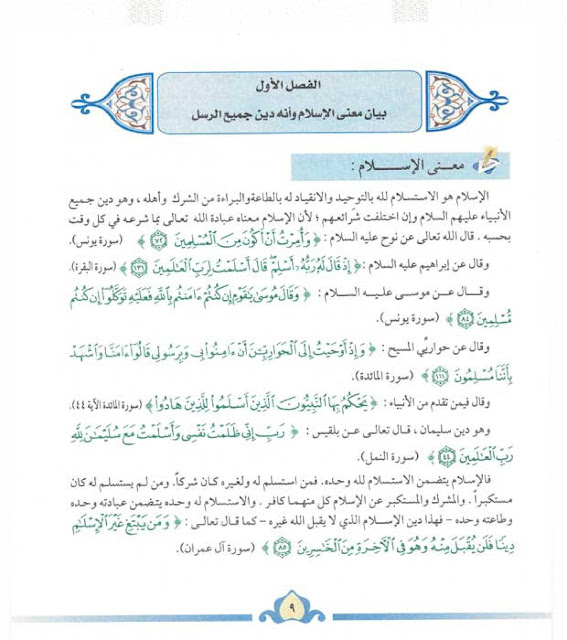 الفصل الأول
بيان معنى الإسلام وأنه دين جميع الرسل
معنى الإســـلام :
الإسلام هو الاستسلام لله بالتوحيد والانقياد له بالطاعة والبراءة من الشرك وأهله ، وهو دين جميع
الأنبياء عليهم السلام وإن اختلفت شرائعهم ؛ لأن الإسلام معناه عبادة الله تعالى بما شرعه في كل وقت
بحسبه . قال الله تعالى عن نوح عليه السلام : ﴿ وَأُمِرْتُ أَنْ أَكُونَ مِنَ الْمُسْلِمِينَ ﴿٧٢﴾ ﴾ (سورة يونس).
وقال عن إبراهيم عليه السلام : ﴿ إِذْ قَالَ لَهُ رَبُّهُ أَسْلِمْ قَالَ أَسْلَمْتُ لِرَبِّ الْعَالَمِينَ ﴿١٣١﴾ ﴾ (سورة البقرة).
وقــال عــن موسـى عليــه الســلام : ﴿ وَقَالَ مُوسَىٰ يَٰقَوْمِ إِن كُنتُمْ ءَامَنتُم بِاللَّهِ فَعَلَيْهِ تَوَكَّلُوٓا۟ إِن كُنتُم
مُّسْلِمِينَ ﴿٨٤﴾ ﴾ (سورة يونس).
وقال عن حواريِّي المسيح : ﴿ وَإِذْ أَوْحَيْتُ إِلَى الْحَوَارِيِّـۧنَ أَنْ ءَامِنُوا۟ بِى وَبِرَسُولِى قَالُوٓا۟ ءَامَنَّا وَاشْهَدْ
بِأَنَّنَا مُسْلِمُونَ ﴿١١١﴾ ﴾ (سورة المائدة).
وقال فيمن تقدم من الأنبياء : ﴿ يَحْكُمُ بِهَا النَّبِيُّونَ الَّذِينَ أَسْلَمُوا۟ لِلَّذِينَ هَادُوا۟ ﴾ (سورة المائدة الآية ٤٤).
وهو دين سليمان ، قال تعالى عن بلقيس : ﴿ رَبِّ إِنِّى ظَلَمْتُ نَفْسِى وَأَسْلَمْتُ مَعَ سُلَيْمَٰنَ لِلَّهِ
رَبِّ الْعَالَمِينَ ﴿٤٤﴾ ﴾ (سورة النمل).
فالإسلام يتضمن الاستسلام لله وحده. فمن استسلم له ولغيره كان شركاً. ومن لم يستسلم له كان
مستكبراً . والمشرك والمستكبر عن الإسلام كل منهما كافر . والاستسلام له وحده يتضمن عبادته وحده
وطاعته وحده – فهذا دين الإسلام الذي لا يقبل الله غيره – كما قـال تعـالى : ﴿ وَمَن يَبْتَغِ غَيْرَ الْإِسْلَٰمِ
دِينًا فَلَن يُقْبَلَ مِنْهُ وَهُوَ فِى الْـَٔاخِرَةِ مِنَ الْخَاسِرِينَ ﴿٨٥﴾ ﴾ (سورة آل عمران).
٩